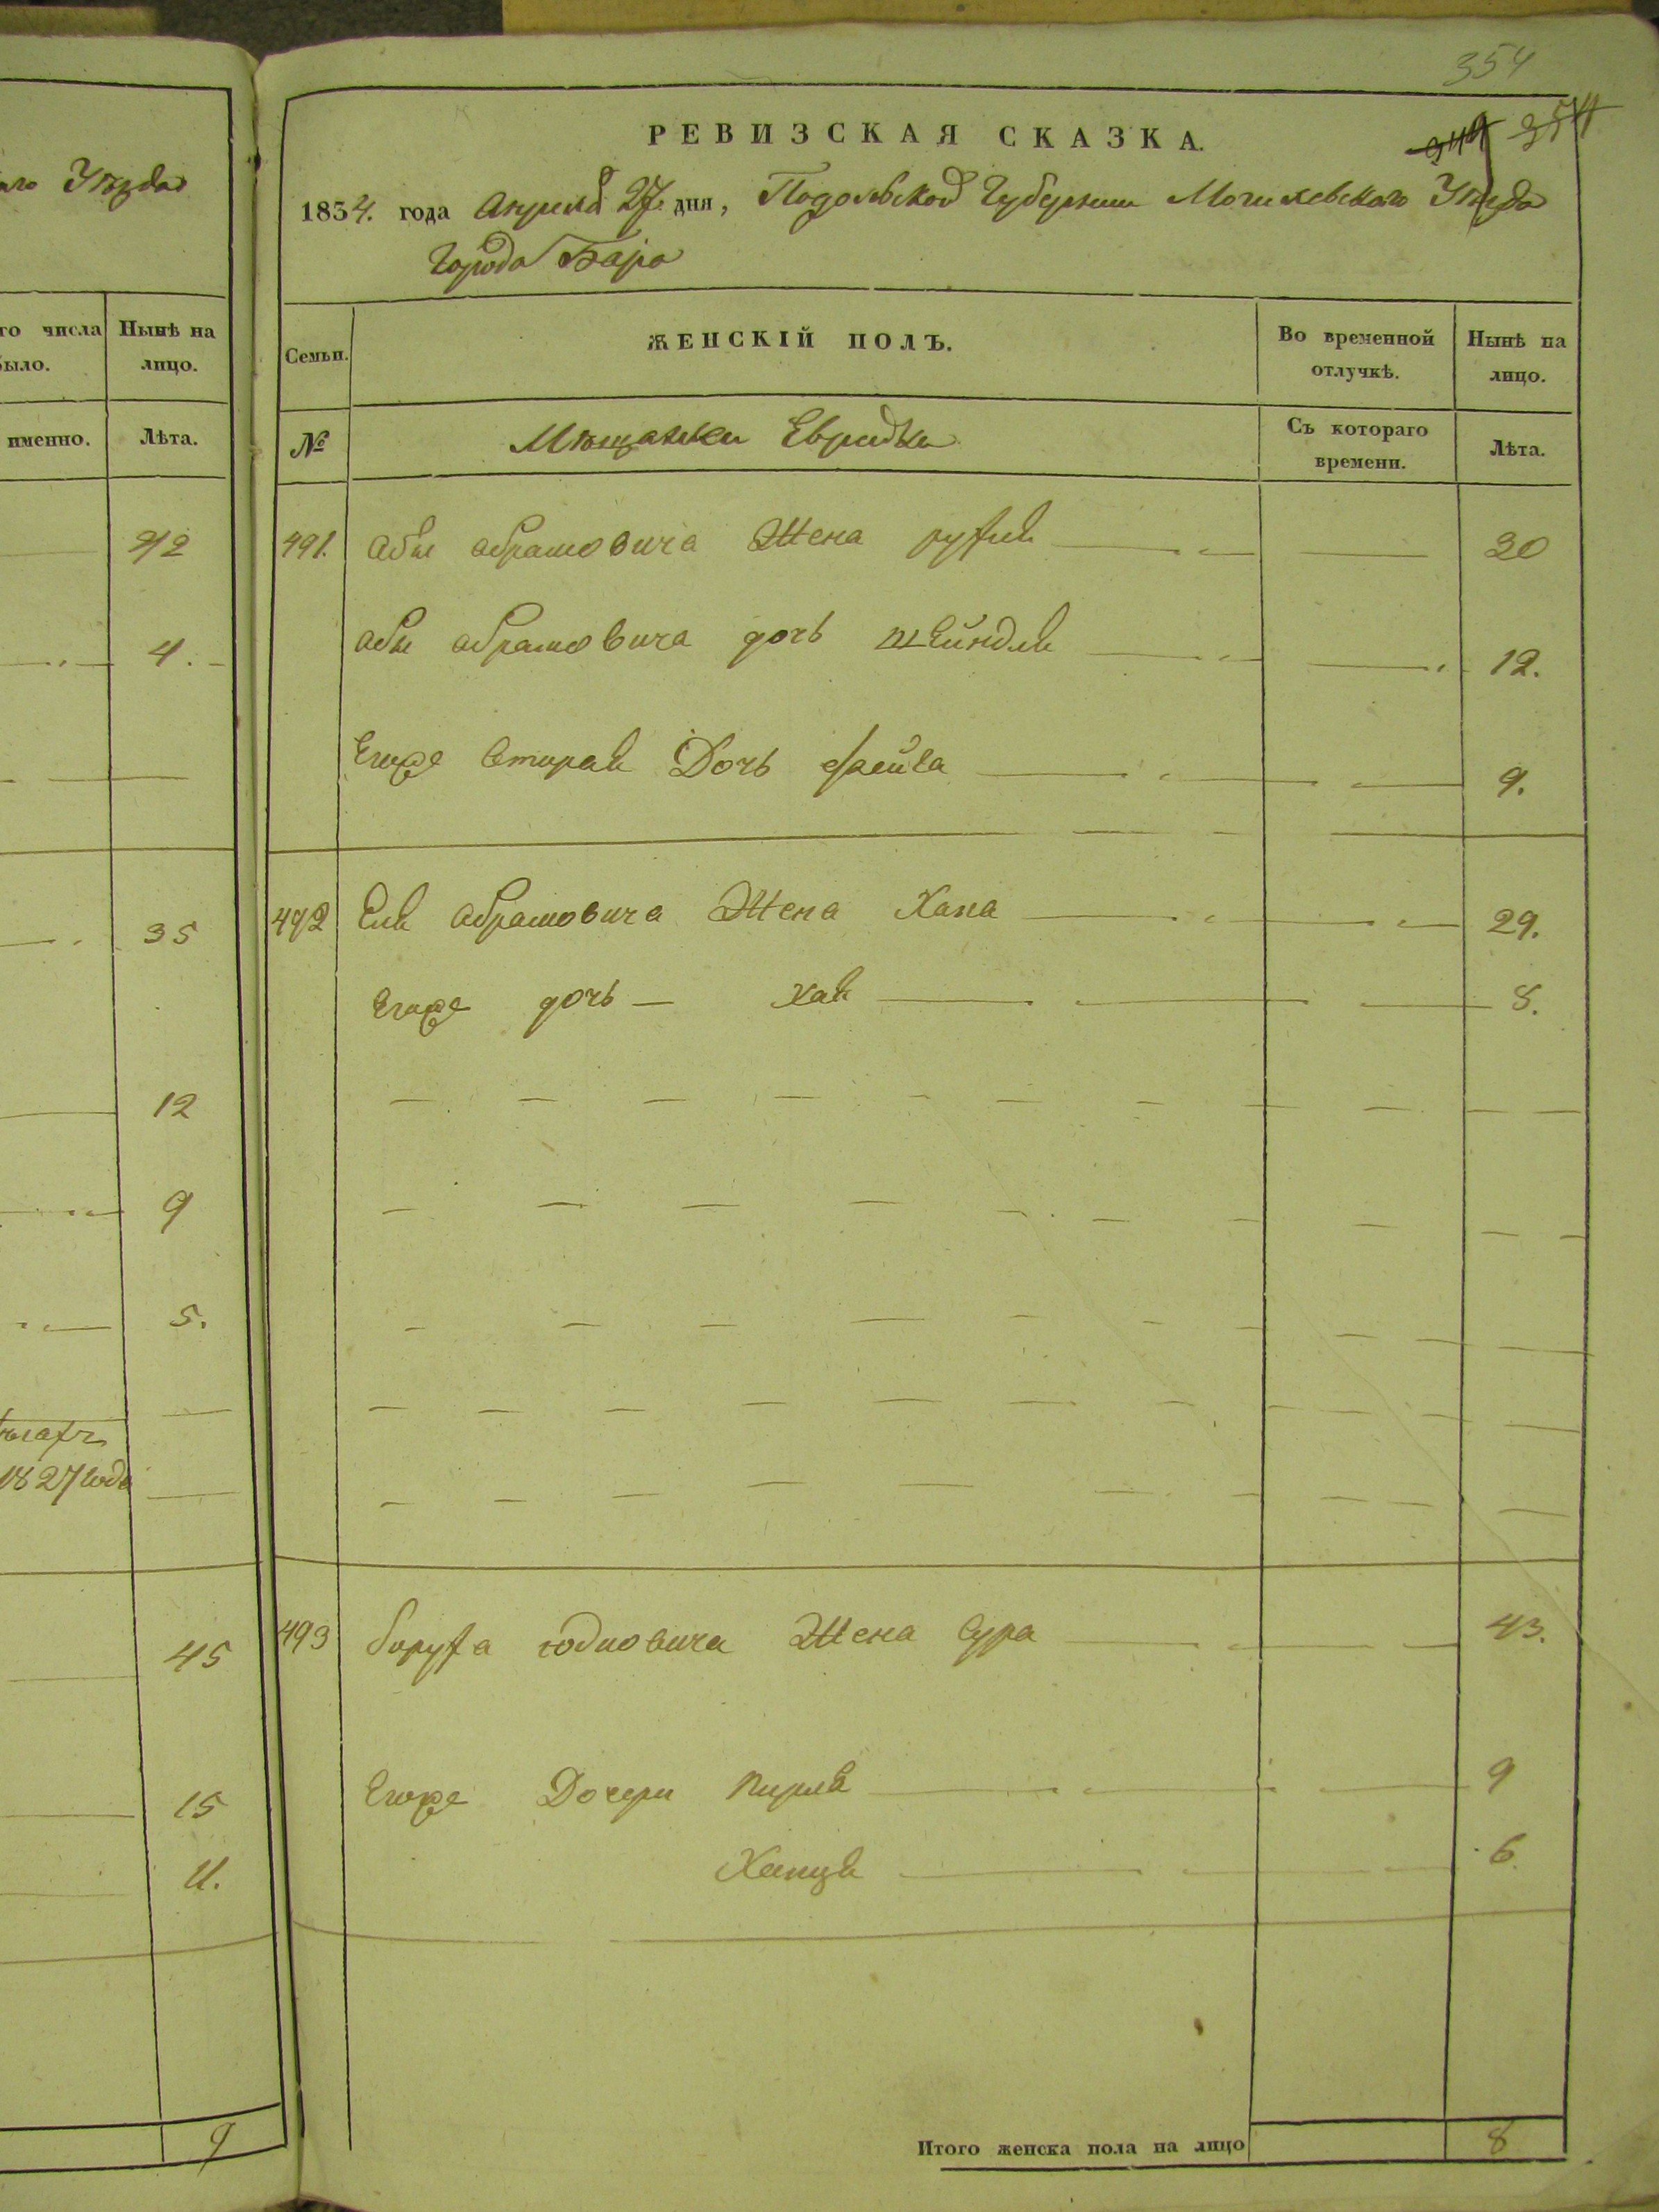 354
РЕВИЗСКАЯ СКАЗКА.
344 354
1854. года Апреля 27. дня, Подольской Губернии Могилевского Уезда
Города Бара
Семьи.
ЖЕНСКІЙ ПОЛЪ.
Во временной отлучкѣ.
Нынѣ на лицо.
№
Мѣщанки Еврейки
Съ котораго времени.
Лѣта.
491. Абы абрамовича Жена рухля 30
абы абрамовича дочь шейндля 12.
Егоже вторая Дочь фейга 9.
492 Еля абрамовича Жена Хана 29.
Егоже дочь — хая 8.
493 боруха юдковича Жена Сура 43.
Егоже Дочери пирля 9
Хапця 6
Итого женска пола на лицо 8
аго Уѣзда
го числа
было.
Нынѣ на
лицо.
именно.
Лѣта.
4.
35
12
9
5.
1827 года
45
15
11.
9